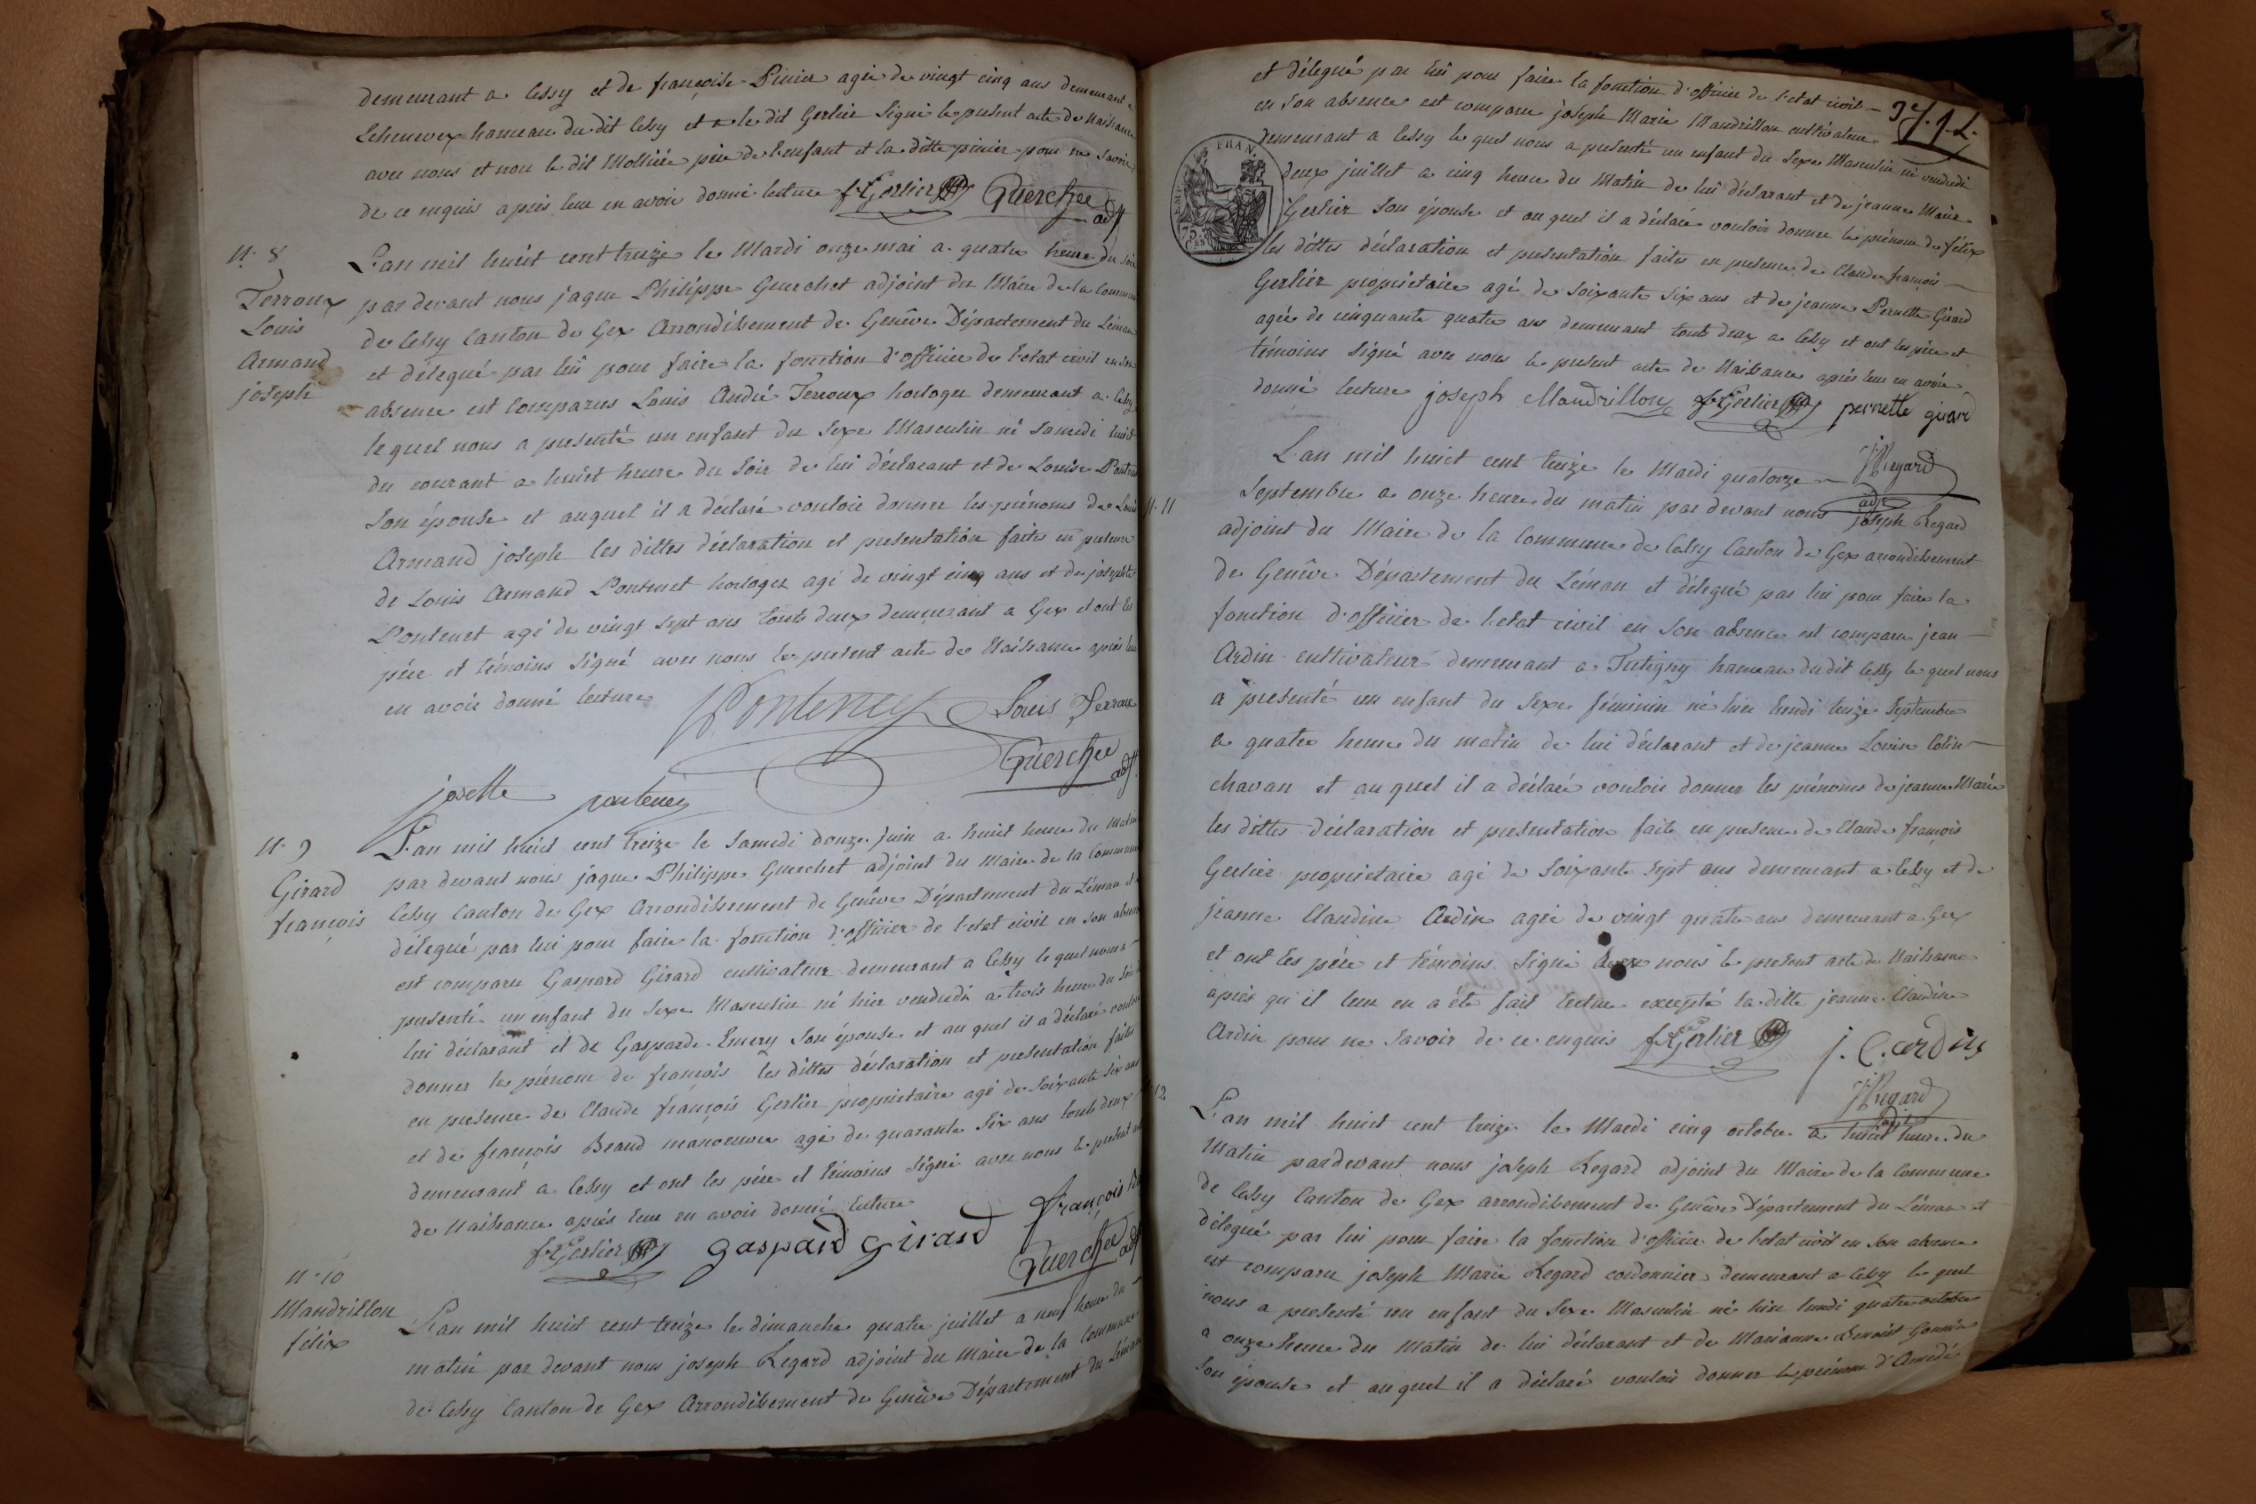 demeurant a Cessy et de françoise Pinier agée de vingt cinq ans demeurant a
hameau du dit Cessy et le dit Gerlier signé le present acte de Naissance
avec nous et non le dit père de l'enfant et la ditte pinier pour ne savoir
de ce enquis après leur en avoir donné lecture f Gerlier Guerchet adjt
N. 8
Terroux
Louis
Armand
joseph
L'an mil huit cent treize le Mardi onze mai a quatre heure du soir
par devant nous jaque Philippe Guerchet adjoint du Maire de la Commune
de Cessy Canton de Gex Arrondissement de Genêve Département du Léman
et délegué par lui pour faire la fonction d'officier de l'etat civil en son
absence est comparus Louis André Terroux horloger demeurant a Cessy
le quel nous a presenté un enfant du sexe Masculin né samedi huit
du courant a huit heure du soir de lui déclarant et de Louise
son épouse et auquel il a déclaré vouloir donner les prénoms de Louis
Armand joseph les dittes déclaration et presentation faites en presence
de Louis Armand Pontenet horloger agé de vingt cinq ans et de josephte
Pontenet agé de vingt sept ans touts deux demeurant a Gex et ont les
père et témoins signé avec nous le present acte de Naissance après leur
en avoir donné lecture Pontenet Louis Terroux
Guerchet adjt
josette pontenet
N. 9
Girard
françois
L'an mil huit cent treize le samedi douze juin a huit heure du Matin
par devant nous jaque Philippe Guerchet adjoint du Maire de la Commune
Cessy Canton de Gex Arrondissement de Genêve Département du Léman et
délegué par lui pour faire la fonction d'officier de l'etat civil en son absence
est comparu Gaspard Girard cultivateur demeurant a Cessy le quel nous
presenté un enfant du sexe Masculin né hier vendredi a trois heure du soir
lui déclarant et de Gasparde Emery son épouse et au quel il a déclaré vouloir
donner le prénom de françois les dittes déclaration et presentation faites
en presence de Claude françois Gerlier propriétaire agé de soixante six ans
et de françois Brand manoeuvre agé de quarante six ans touts deux
demeurant a Cessy et ont les père et témoins signé avec nous le present
de Naissance après leur en avoir donné lecture
f Gerlier gaspard girard françois
Guerchet adjt
N. 10
Mandrillon
félix
L'an mil huit cent treize le dimanche quatre juillet a neuf heure du
matin par devant nous joseph Regard adjoint du Maire de la Commune
de Cessy Canton de Gex Arrondissement de Genêve Département du Léman
et délegué par lui pour faire la fonction d'officier de l'etat civil
en son absence est comparu joseph Marie Mandrillon cultivateur
demeurant a Cessy le quel nous a presenté un enfant du sexe Masculin né vendredi
deux juillet a cinq heure du Matin de lui déclarant et de jeanne Marie
Gerlier son épouse et au quel il a déclaré vouloir donner le prénom de félix
les dittes déclaration et presentation faites en presence de Claude françois
Gerlier propriétaire agé de soixante six ans et de jeanne Pernette Girard
agée de cinquante quatre ans demeurant touts deux a Cessy et ont les père et
témoins signé avec nous le present acte de Naissance après leur en avoir
donné lecture joseph Mandrillon f Gerlier pernette girard
JRegard
adjt
N. 11
L'an mil huit cent treize le Mardi quatorze
septembre a onze heure du matin par devant nous joseph Regard
adjoint du Maire de la Commune de Cessy Canton de Gex arrondissement
de Genêve Département du Léman et délegué par lui pour faire la
fonction d'officier de l'etat civil en son absence est comparu jean
Ardin cultivateur demeurant a Tutigny hameau dudit Cessy le quel nous
a presenté un enfant du sexe féminin né hier lundi treize septembre
a quatre heure du matin de lui déclarant et de jeanne Louise Colin
chavan et au quel il a déclaré vouloir donner les prénoms de jeanne Marie
les dittes déclaration et presentation faite en presence de Claude françois
Gerlier propriétaire agé de soixante sept ans demeurant a Cessy et de
jeanne Claudine Ardin agée de vingt quatre ans demeurant a Gex
et ont les père et témoins signé avec nous le present acte de Naissance
après qu'il leur en a été fait lecture excepté la ditte jeanne Claudine
Ardin pour ne savoir de ce enquis f Gerlier j. C. ardin
JRegard
adjt
12
L'an mil huit cent treize le Mardi cinq octobre a huit heure du
Matin pardevant nous joseph Regard adjoint du Maire de la Commune
de Cessy Canton de Gex arrondissement de Genêve Département du Léman et
délegué par lui pour faire la fonction d'officier de l'etat civil en son absence
est comparu joseph Marie Regard cordonnier demeurant a Cessy le quel
nous a presenté un enfant du sexe Masculin né hier lundi quatre octobre
a onze heure du Matin de lui déclarant et de Marianne Benoist
son épouse et auquel il a déclaré vouloir donner le prénom d'Amedé
FRAN
75